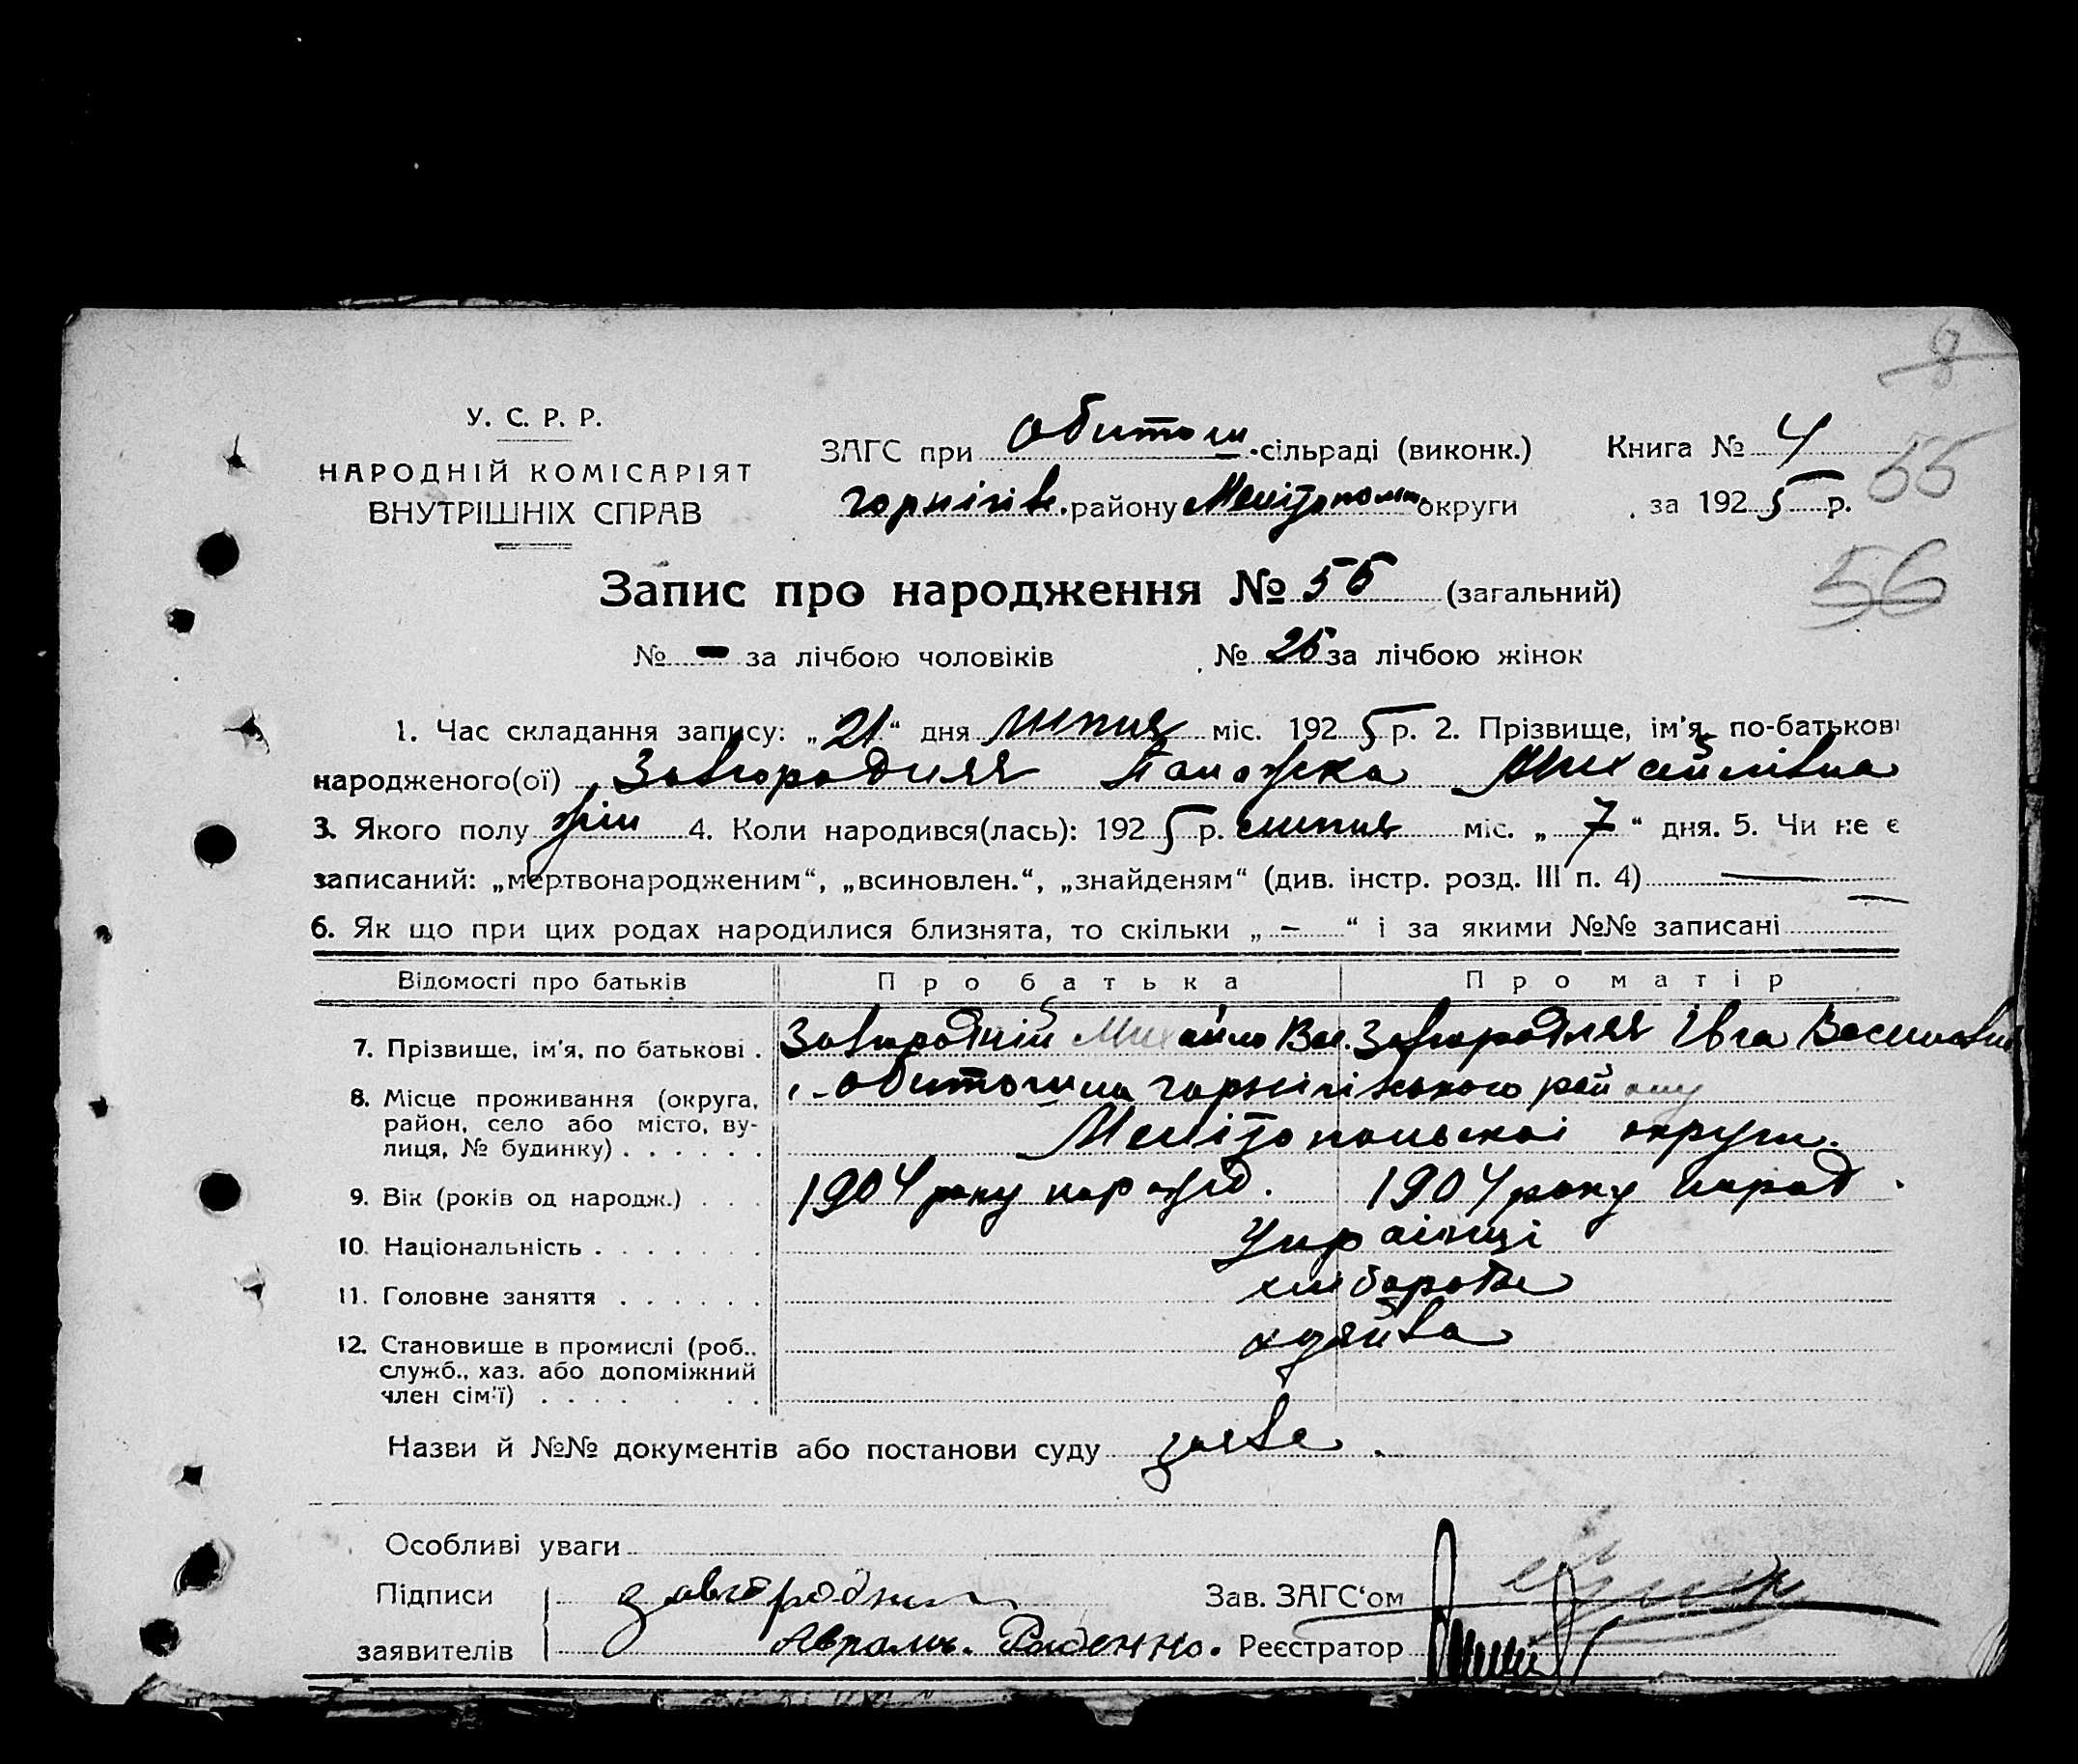 8
У. С. Р. Р.
НАРОДНІЙ КОМІСАРІЯТ
ВНУТРІШНІХ СПРАВ
ЗАГС при Обиточн. сільраді (виконк.)
Книга № 4
55
Чернігів. району Мелітопольс округи
за 1925 р.
56
Запис про народження № 55 (загальний)
№ - за лічбою чоловіків № 25 за лічбою жінок
1. Час складання запису: „21“ дня липня міс. 1925 р. 2. Прізвище, ім'я, по-батькові
народженого(ої) Завгородняя Михайлівна
3. Якого полу жін 4. Коли народився(лась): 1925 р. липня міс. „7“ дня. 5. Чи не є
записаний: „мертвонародженим“, „всиновлен.“, „знайденям“ (див. інстр. розд. III п. 4) —
6. Як що при цих родах народилися близнята, то скільки „–“ і за якими №№ записані
Відомості про батьків Про батька Про матір
7. Прізвище, ім'я, по батькові . Завгородній Михайло Вас. Завгородняя Івга Василівна
8. Місце проживання (округа, район, село або місто, вулиця, № будинку) . . . . . . Обиточна Чернігівського району
Мелітопольскої округи.
9. Вік (років од народж.) . . . 1904 року народ. 1904 року народ.
10. Національність . . . . . . . Українці
11. Головне заняття . . . . . . хлібороби
12. Становище в промислі (роб., служб., хаз. або допоміжний член сім'ї) . . . . . . хазяйва
Назви й №№ документів або постанови суду заява.
Особливі уваги
Підписи Завгородни Зав. ЗАГС‘ом
заявителів Реєстратор